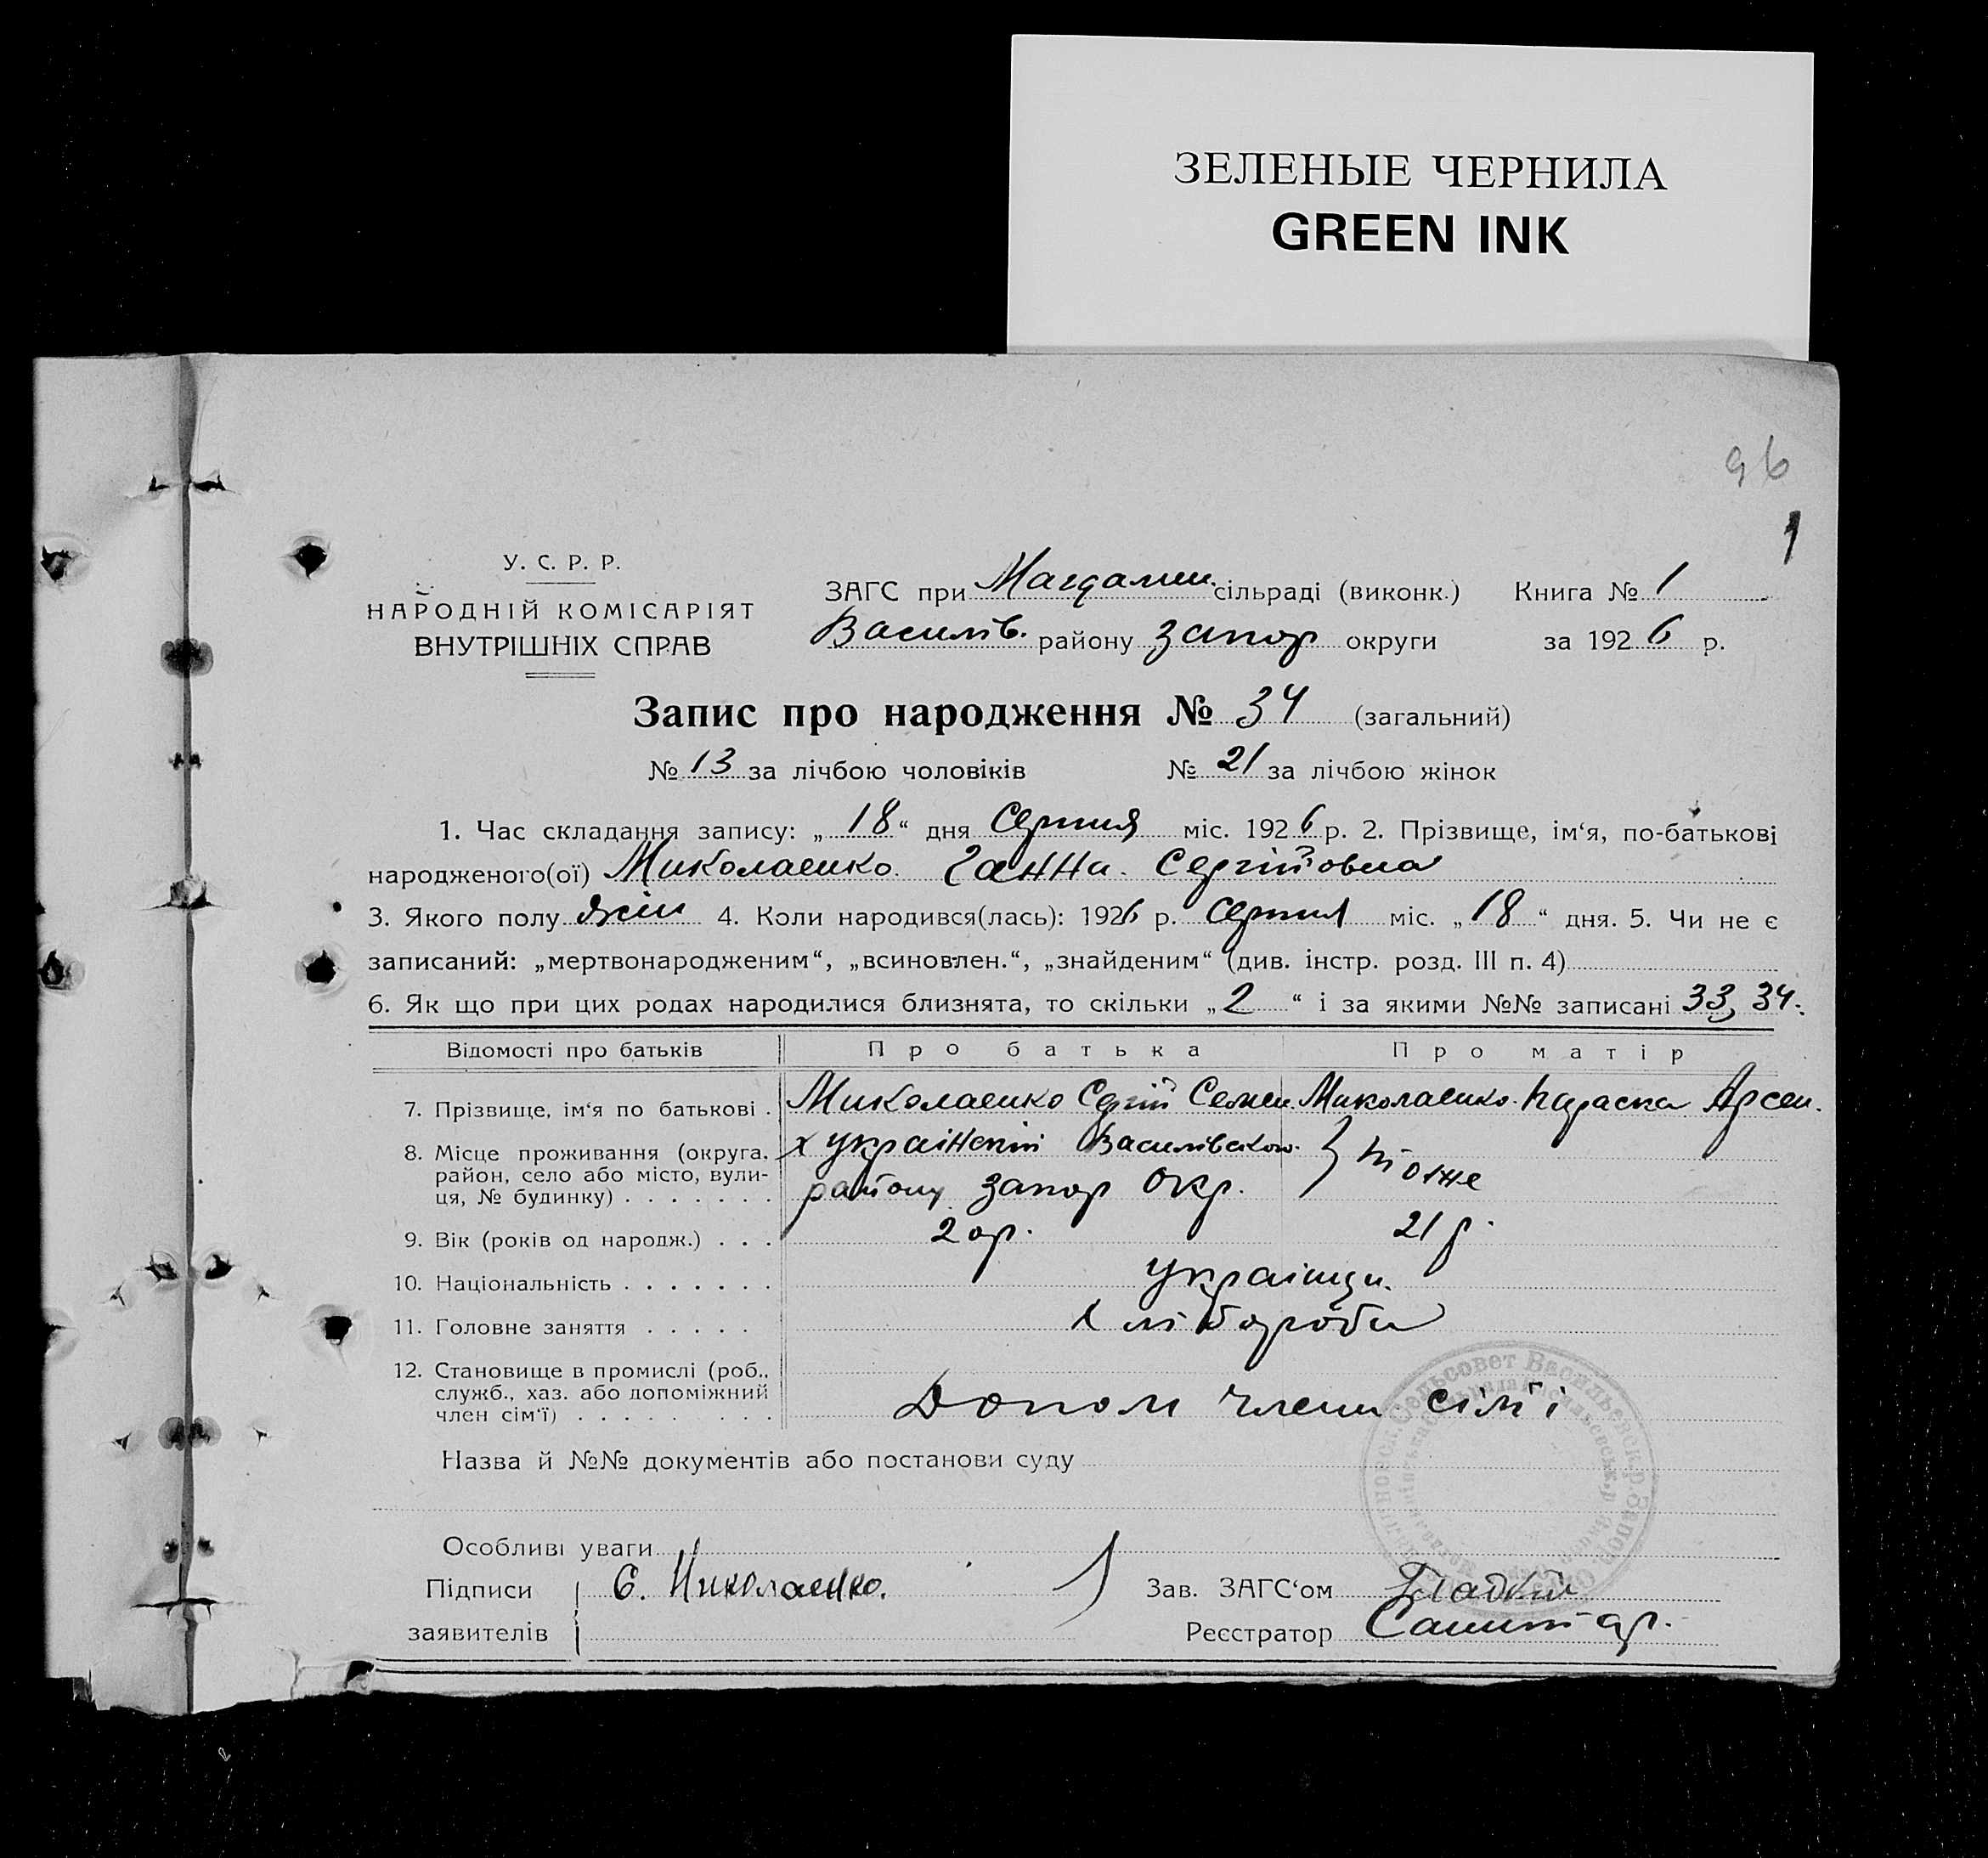 ЗЕЛЕНЫЕ ЧЕРНИЛА
GREEN INK
96
1
У. С. Р. Р.
НАРОДНІЙ КОМІСАРІЯТ
ВНУТРІШНІХ СПРАВ
ЗАГС при Магдалин. сільраді (виконк.) Книга № 1
Василів. району Запор округи за 1926 р.
Запис про народження № 34 (загальний)
№ 13 за лічбою чоловіків № 21 за лічбою жінок
1. Час складання запису: „18“ дня Серпня міс. 1926 р. 2. Прізвище, ім‘я, по-батькові
народженого(ої) Миколаенко Ганна Сергійовна
3. Якого полу жін 4. Коли народився(лась): 1926 р. Серпня міс. „18“ дня. 5. Чи не є
записаний: „мертвонародженим“, „всиновлен.“, „знайденим“ (див. інстр. розд. III п. 4)
6. Як що при цих родах народилися близнята, то скільки „2“ і за якими №№ записані 33, 34.
Відомості про батьків Про батька Про матір
7. Прізвище, ім‘я по батькові . Миколаенко Сергій Семен. Миколаенко Параска Арсен.
8. Місце проживання (округа, район, село або місто, вулиця, № будинку) . . . . . . . х Український Василівського району Запор Окр. } тоже
9. Вік (років од народж.) . . . 20р. 21р.
10. Національність . . . . . . . українці.
11. Головне заняття . . . . . Хлібороби
12. Становище в промислі (роб., служб., хаз. або допоміжний член сім‘ї) . . . . . . . . Допом члени сімї
Назва й №№ документів або постанови суду
Особливі уваги
Підписи С. Миколаенко. Зав. ЗАГС‘ом Гладкий
заявителів Реєстратор